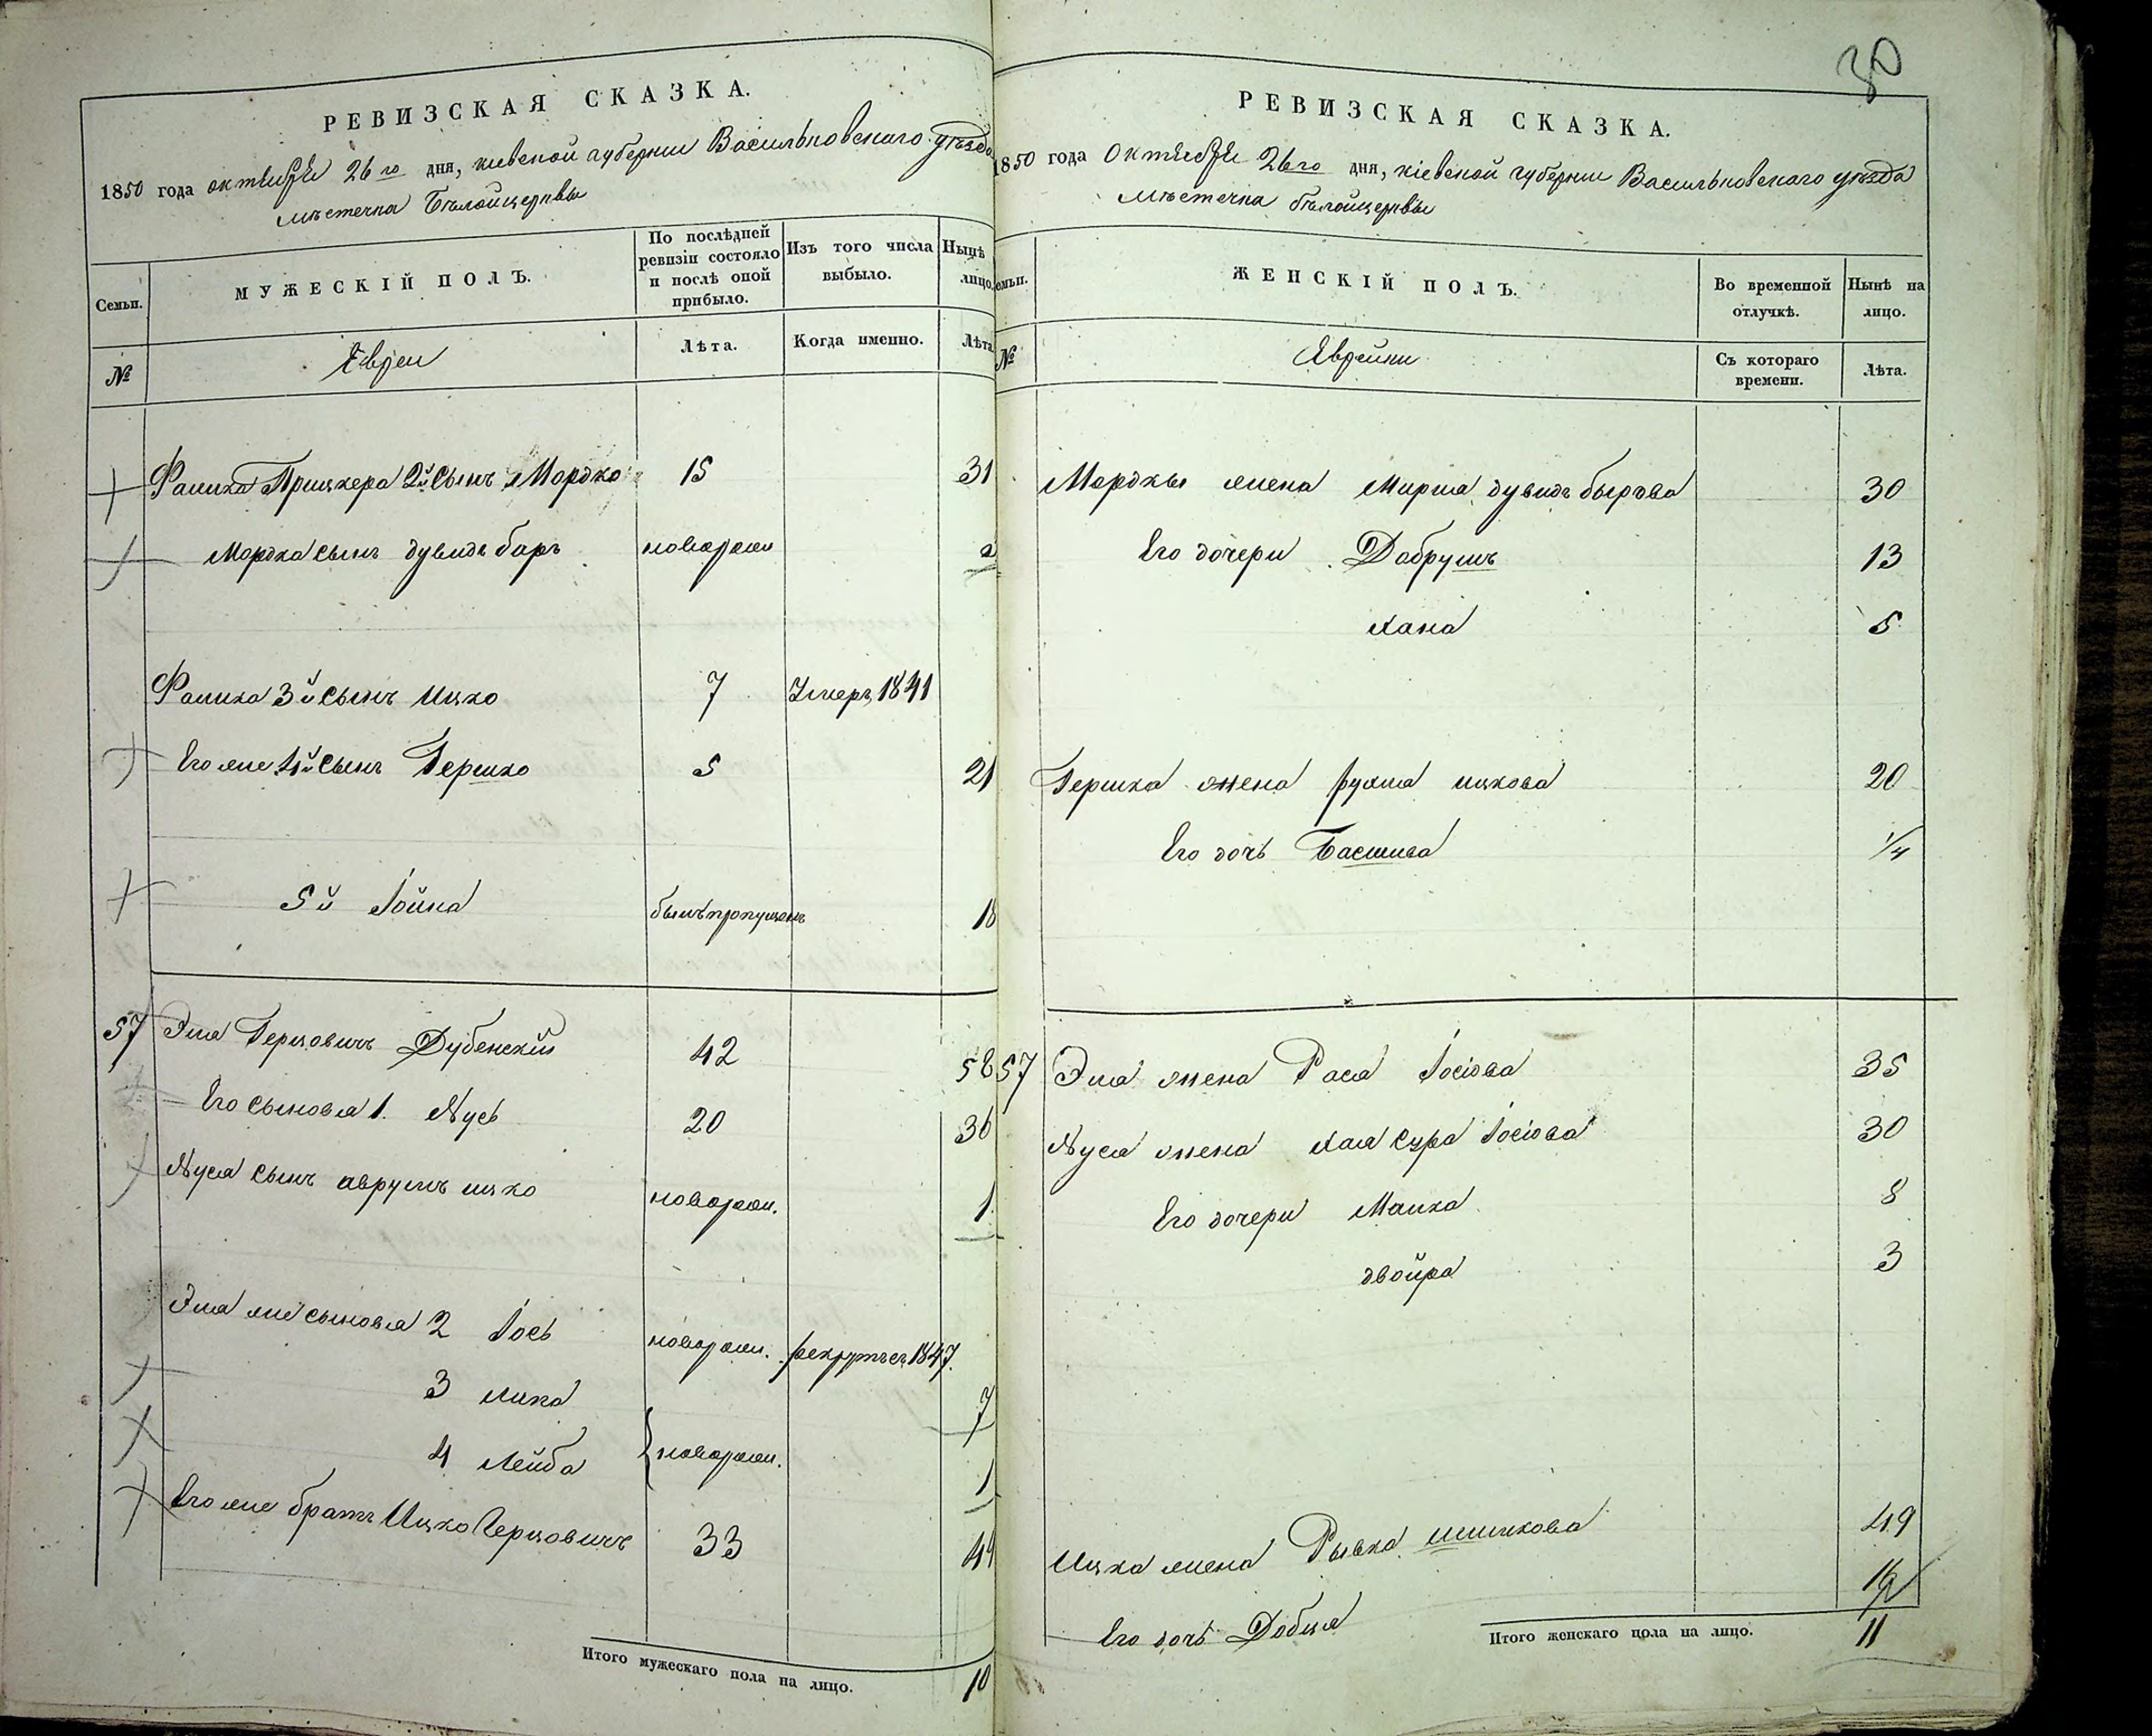 РЕВИЗСКАЯ СКАЗКА.
1850 года октября 26го дня, киевской губернии Васильковскаго уѣзда
мѣстечка Бѣлойцеркви
Семьи.
МУЖЕСКІЙ ПОЛЪ.
По послѣдней ревизіи состояло и послѣ оной прибыло.
Изъ того числа выбыло.
Нынѣ лицо.
№
Евреи
Лѣта.
Когда именно.
Лѣта
Фалика Прицкера 2й сынъ Мордко 15 31
Мордка сынъ дувидъ беръ новорож
Фалика 3й сынъ Ицко 7 Умеръ 1841
Его же 4й сынъ Гершко 5 21
5й Іойна былъ пропущенъ 18
57 Эля Герцовичъ Дубенскій 42 58
Его сыновья 1. Нусь 20 36
Нуся сынъ аврумъ ицко новорож. 1
Эля же сыновья 2 Іось новорож. рекрутъ съ 1847.
3 7
4 Лейба новорож. 1
Его же братъ Ицко Герцовичъ 33 49
Итого мужескаго пола на лицо. 10
30
РЕВИЗСКАЯ СКАЗКА.
1850 года Октября 26го дня, кіевской губернии Васильковскаго уѣзда
мѣстечка бѣлойцеркви
емьи.
ЖЕНСКІЙ ПОЛЪ.
Во временной отлучкѣ.
Нынѣ на лицо.
№
Еврейки
Съ котораго времени.
Лѣта.
Мордки жена Мирля дувидъ берова 30
Его дочери Добрушъ 13
Хана 5
Гершка жена рухля ицкова 20
Его дочь Басшива 1/4
57 Эля жена Рася Іосіова 35
Нуся жена Хая сура Іосіова 30
Его дочери Малка 8
двойра 3
Ицка жена Рывка 49
Его дочь Добця
Итого женскаго пола на лицо. 11